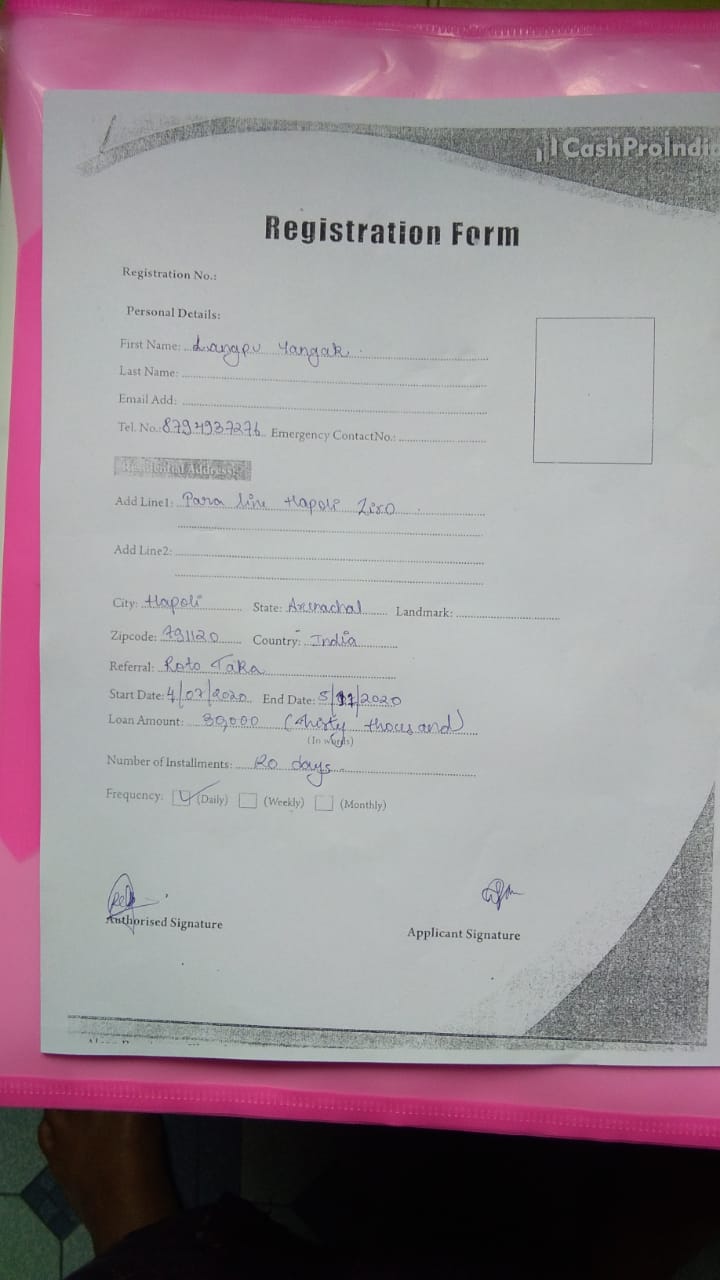 CashProIndi
Registration Form
Registration No.:
Personal Details:
First Name: Langpu Yangak
Last Name:
Email Add:
Tel. No.: 8794937276 Emergency ContactNo.:
Residential Address:
Add Line1: Para line Hapoli Ziro
Add Line2:
City: Hapoli State: Arunachal Landmark:
Zipcode: 791120 Country: India
Referral: Roto Taka
Start Date: 4/07/2020 End Date: 5/11/2020
Loan Amount: 30,000 (thirty thousand)
(In words)
Number of Installments: 20 days
Frequency: (Daily) (Weekly) (Monthly)
Authorised Signature
Applicant Signature